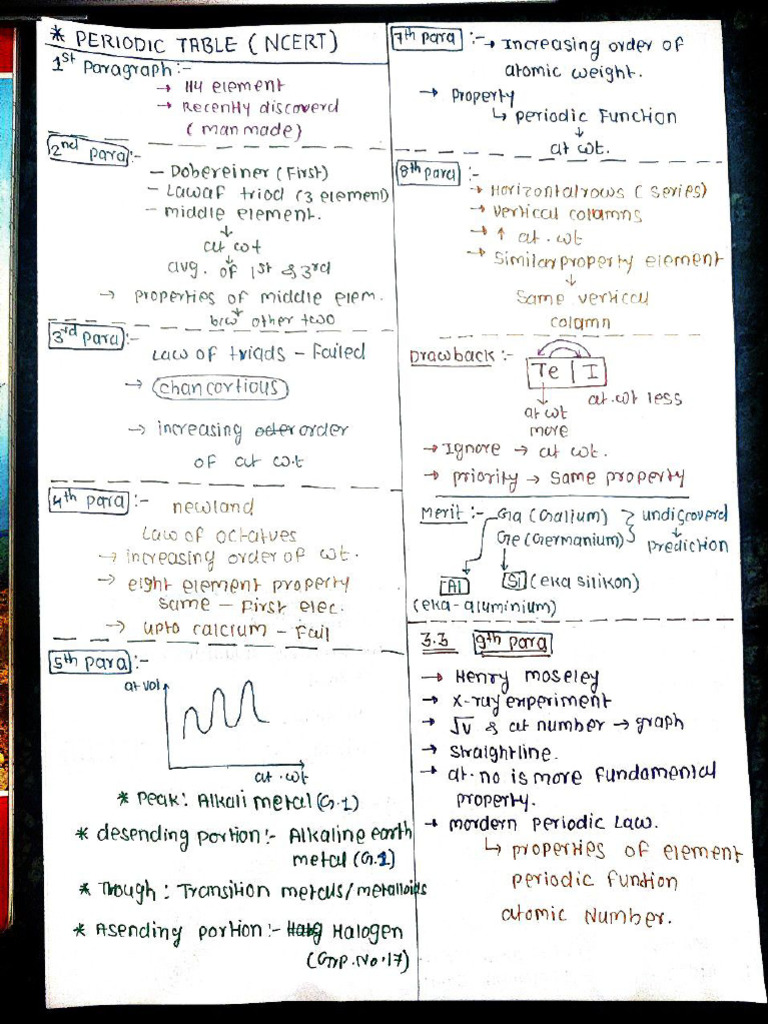 * PERIODIC TABLE (NCERT)
1st Paragraph:-
→ 114 element
→ Recently discoverd
(man made)
2nd para :-
- Dobereiner (First)
- Lawaf triod (3 element)
- middle element.
↓
at wt
↓
avg. of 1st & 3rd
→ properties of middle elem.
↓
b/w other two
3rd para :-
Law of triads - Failed
→ chancortious
→ increasing order
of at w.t
4th para :-
newland
Law of octatves
→ increasing order of wt.
→ eight element property
same - First elec.
→ upto calcium - Fail
5th para :-
at vol
at. wt
* Peak: Alkali metal (G.1)
* desending portion :- Alkaline earth
metal (G.1)
* Though : Transition metals/metalloids
* Asending portion :- Halogen
(Grp. No. 17)
7th para :- → Increasing order of
atomic weight.
→ Property
↳ periodic Function
↓
at wt.
8th para :-
→ Horizontal rows ( series)
→ vertical columns
→ ↑ at. wt
→ Similar property element
↓
Same vertical
column
Drawback :-
Te | I
at wt
more
at. wt less
→ Ignore → at wt.
→ priority → same property
Merit :- Ga (Galium) } undiscoverd
Ge (Germanium) ↓
prediction
Al Si (eka silikon)
(eka-aluminium)
3.3 9th para
→ Henry moseley
→ x-ray experiment
→ √v & at number → graph
→ straightline.
→ at. no is more fundamental
property.
→ mordern periodic Law.
↳ properties of element
periodic funtion
atomic Number.